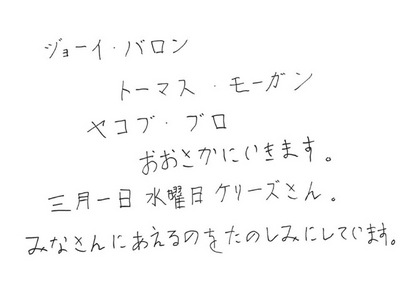 ジョーイ・バロン
トーマス・モーガン
ヤコブ・ブロ
おおさかにいきます。
三月一日 水曜日 ケリーズさん。
みなさんにあえるのをたのしみにしています。